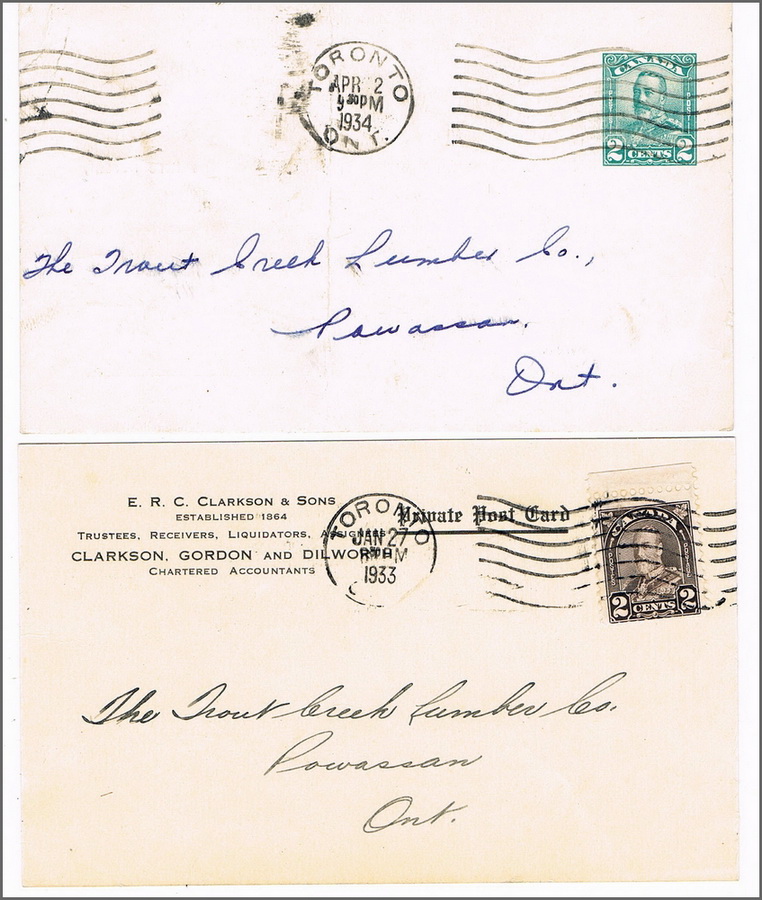 TORONTO
APR 2
9 30 PM
1934
ONT.
CANADA
2 CENTS 2
The Trout Creek Lumber Co.,
Powassan,
Ont.
E. R. C. CLARKSON & SONS
ESTABLISHED 1864
TRUSTEES, RECEIVERS, LIQUIDATORS, ASSIGNEES
CLARKSON, GORDON AND DILWORTH
CHARTERED ACCOUNTANTS
TORONTO
JAN 27
PM
1933
Private Post Card
CANADA
2 CENTS 2
The Trout Creek Lumber Co.
Powassan
Ont.